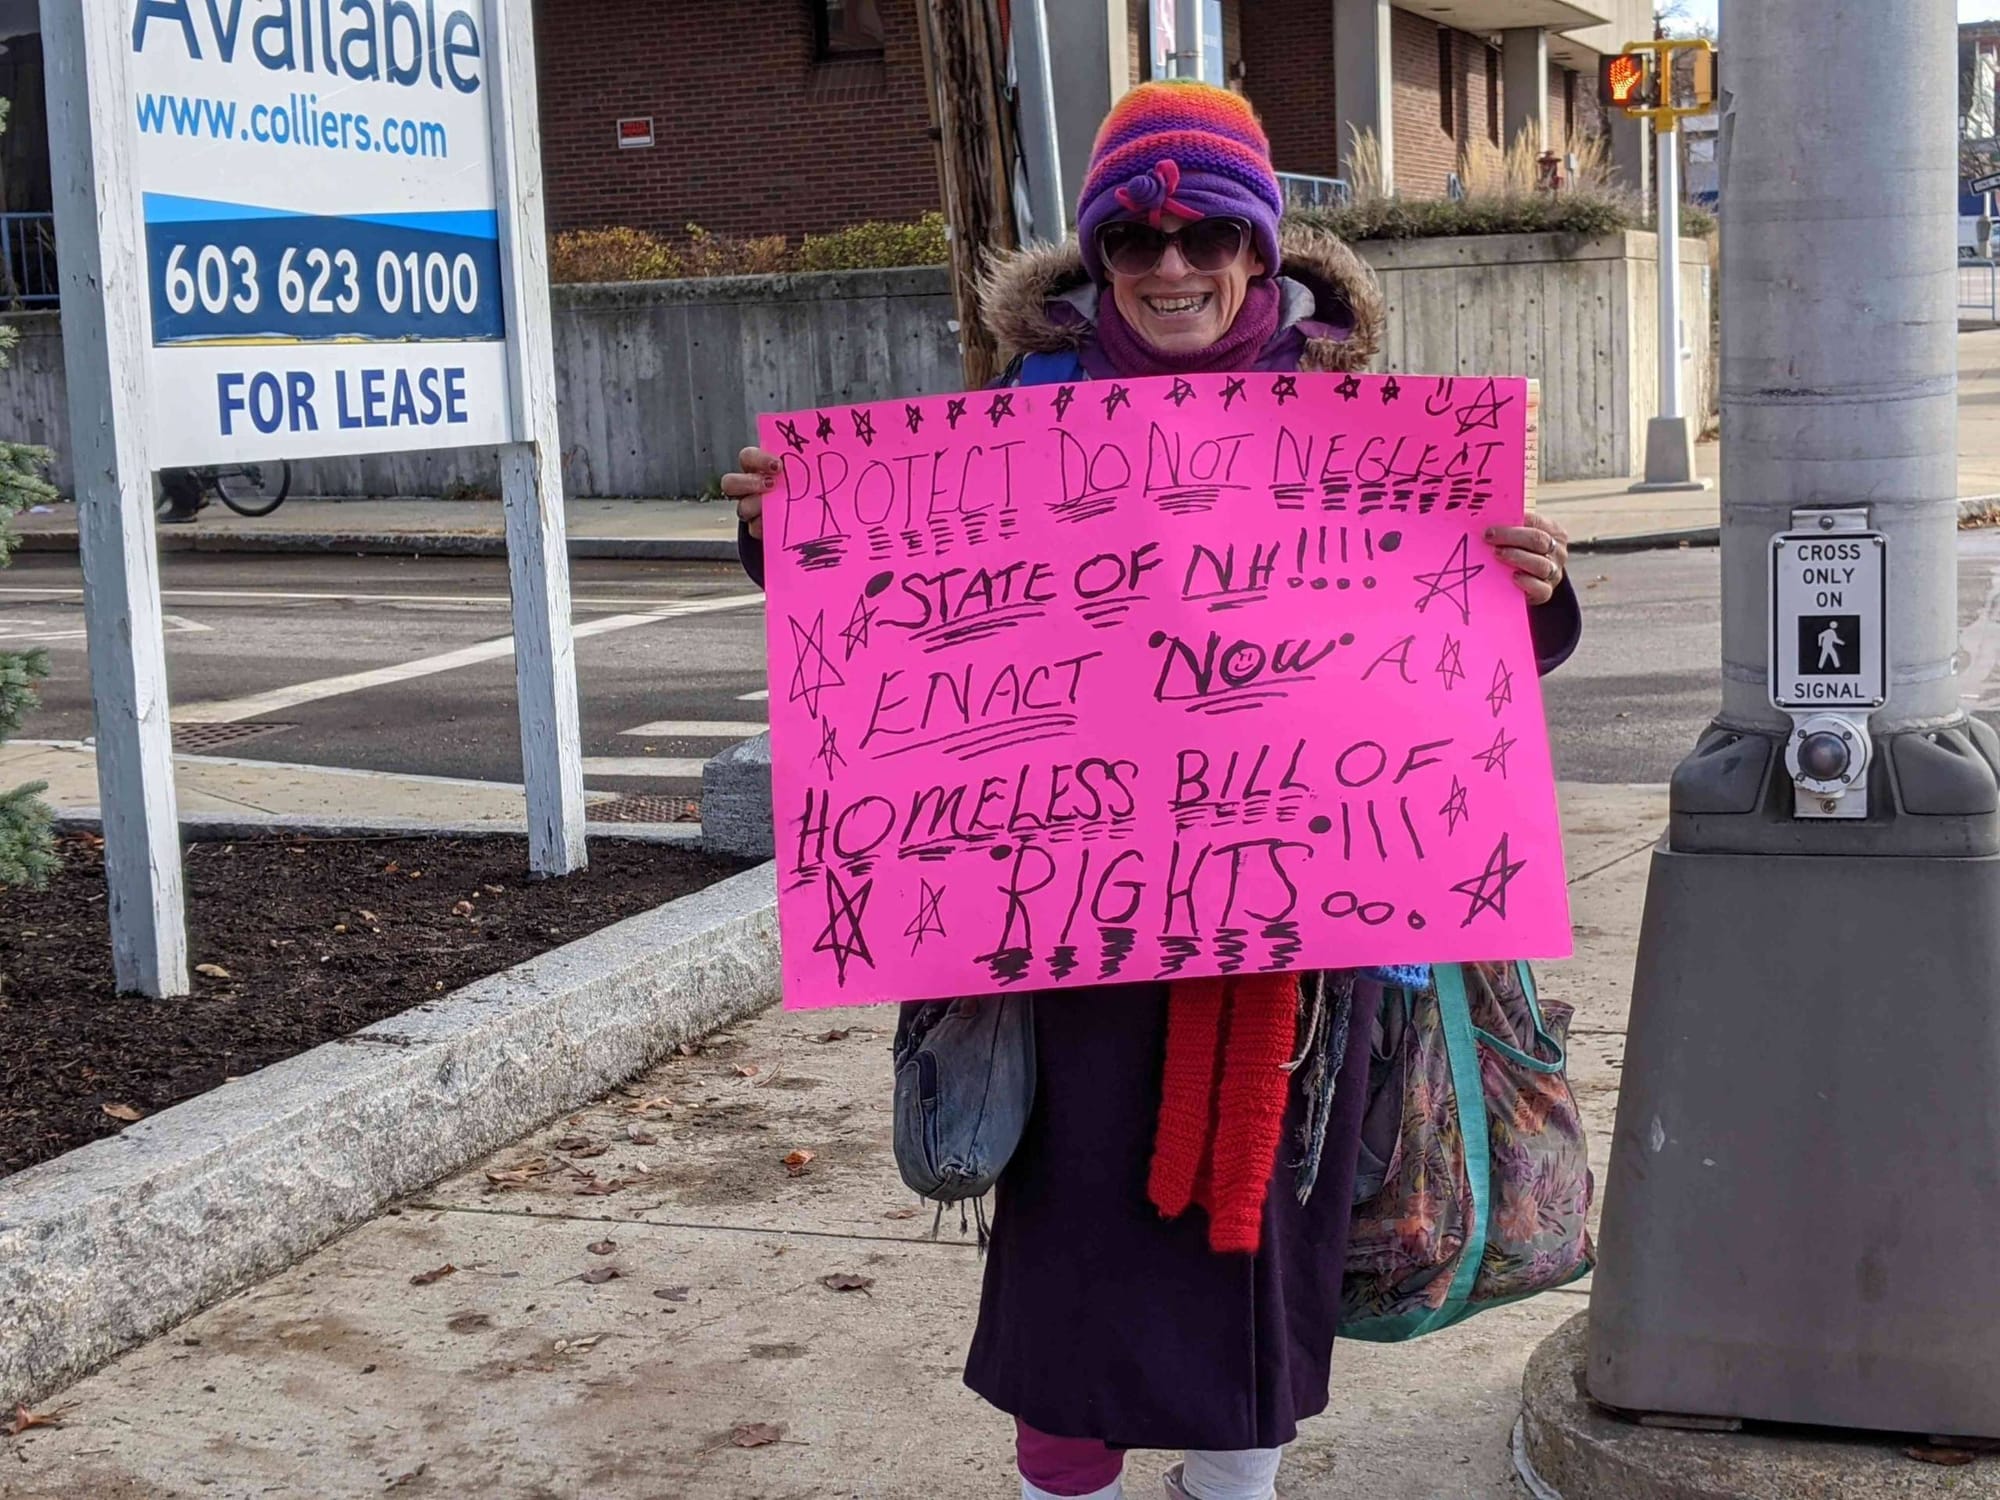 Available
www.colliers.com
603 623 0100
FOR LEASE
PROTECT DO NOT NEGLECT
STATE OF NH!!!!
ENACT NOW A
HOMELESS BILL OF
RIGHTS!!!...
CROSS
ONLY
ON
SIGNAL